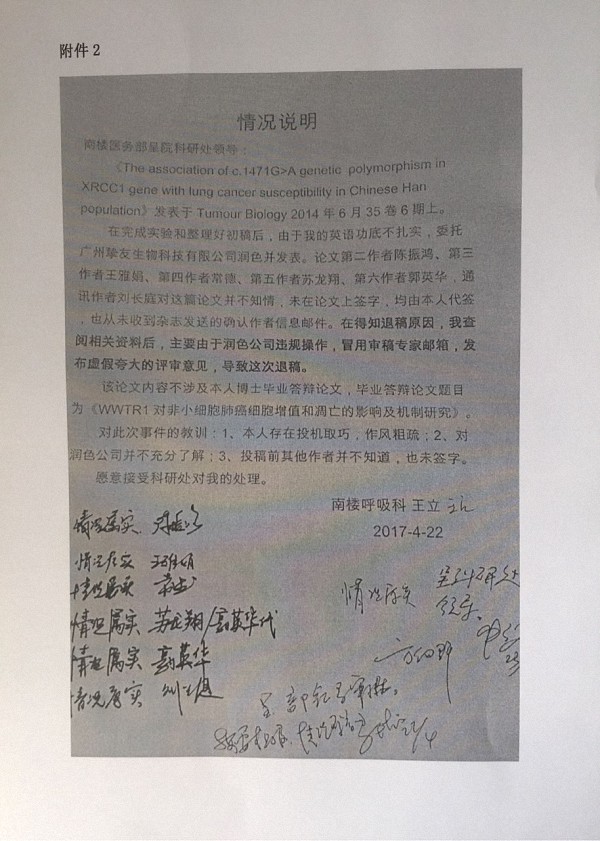 附件2
情况说明
南楼医务部呈院科研处领导：
《The association of c.1471G>A genetic polymorphism in
XRCC1 gene with lung cancer susceptibility in Chinese Han
population》发表于 Tumour Biology 2014 年 6 月 35 卷 6 期上。
在完成实验和整理好初稿后，由于我的英语功底不扎实，委托
广州挚友生物科技有限公司润色并发表。论文第二作者陈振鸿、第三
作者王雅娟、第四作者常德、第五作者苏龙翔、第六作者郭英华，通
讯作者刘长庭对这篇论文并不知情，未在论文上签字，均由本人代签
，也从未收到杂志发送的确认作者信息邮件。在得知退稿原因，我查
阅相关资料后，主要由于润色公司违规操作，冒用审稿专家邮箱，发
布虚假夸大的评审意见，导致这次退稿。
该论文内容不涉及本人博士毕业答辩论文，毕业答辩论文题目
为《WWTR1 对非小细胞肺癌细胞增值和凋亡的影响及机制研究》。
对此次事件的教训：1、本人存在投机取巧，作风粗疏；2、对
润色公司并不充分了解；3、投稿前其他作者并不知道，也未签字。
愿意接受科研处对我的处理。
南楼呼吸科 王立
2017-4-22
情况属实
情况属实 王雅娟
情况属实
情况属实 苏龙翔/郭英华代
情况属实 郭英华
情况属实
情况属实
呈科研处
领导